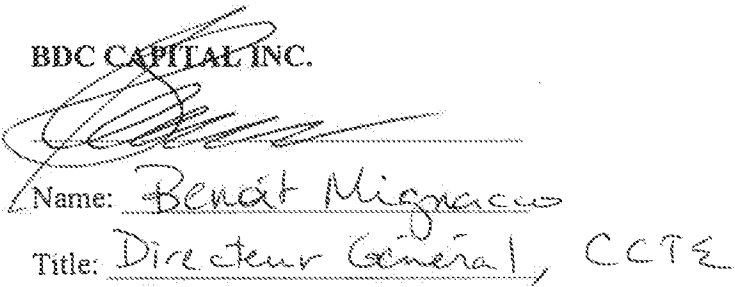 BDC CAPITAL INC.
Name: Benoît Mignacco
Title: Directeur Général, CCTE